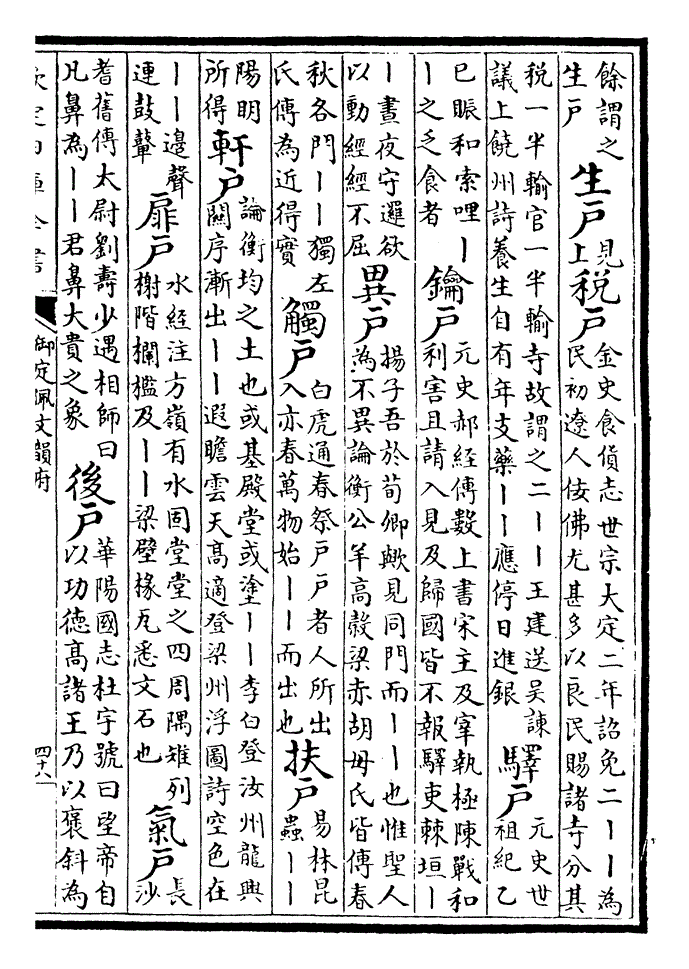 餘謂之
生戶
生戶
見
上
稅戶
金史食貨志世宗大定二年詔免二丨丨為
民初遼人佞佛尤甚多以良民賜諸寺分其
稅一半輸官一半輸寺故謂之二丨丨王建送吳諫
議上饒州詩養生自有年支藥丨丨應停日進銀
驛戶
元史世
祖紀乙
已賑和索哩丨
丨之乏食者
鑰戶
元史郝經傳數上書宋主及宰執極陳戰和
利害且請入見及歸國皆不報驛吏棘垣丨
丨晝夜守邏欲
以動經經不屈
異戶
揚子吾於荀卿歟見同門而丨丨也惟聖人
為不異論衡公羊高榖梁赤胡毋氏皆傳春
秋各門丨丨獨左
氏傳為近得實
觸戶
白虎通春祭戶戶者人所出
入亦春萬物始丨丨而出也
扶戶
易林昆
蟲丨丨
陽明
所得
軒戶
論衡均之土也或基殿堂或塗丨丨李白登汝州龍興
闕序漸出丨丨遐瞻雲天髙適登梁州浮圖詩空色在
丨丨邊聲
連鼓鼙
扉戶
水經注方嶺有水固堂堂之四周隅雉列
榭階欄檻及丨丨梁壁椽瓦悉文石也
氣戶
長
沙
耆舊傳太尉劉壽少遇相師曰
凡鼻為丨丨君鼻大貴之象
後戶
華陽國志杜宇號曰望帝自
以功徳髙諸王乃以襃斜為
欽定四庫全書
御定佩文韻府
四十八